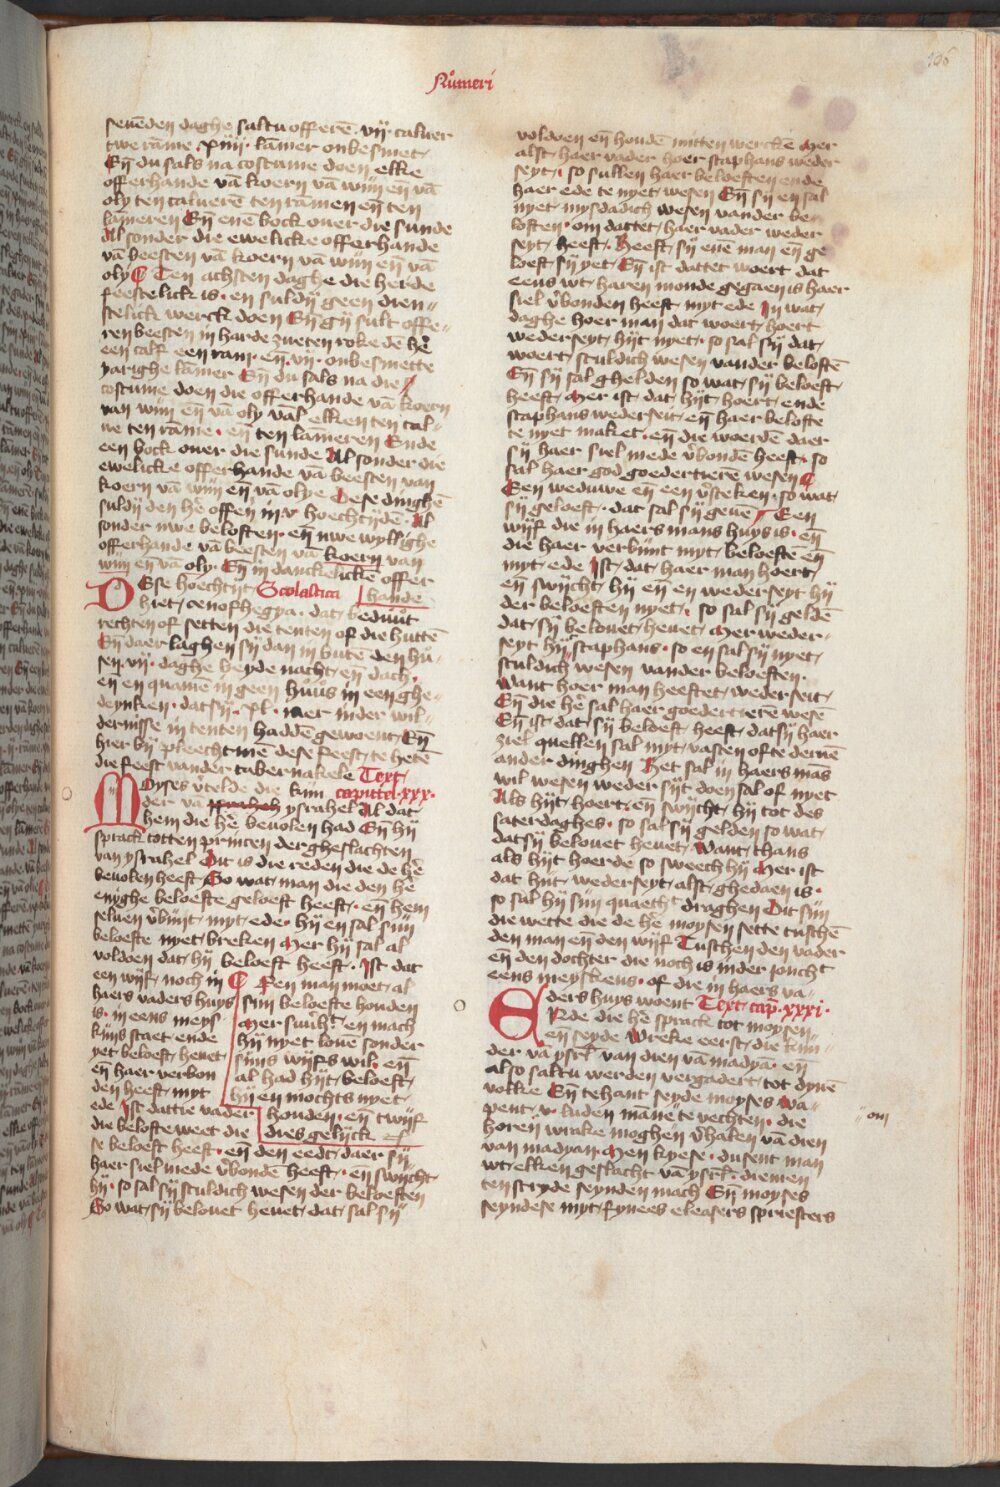 Nůmeri
106
seuēden daghe saltu offerē · vij · caluer
twe rāme · xiiij · lamer onbesmet
Eñ du sals na costume doen elke
offerhande vā koern vā wijn en vā
oly ten caluerē ten ramen eñ ten
lameren Eñ enē bock ouer die sunde
Al sonder die ewelicke offerhande
vā beesten vā koern vā wijn eñ vā
oly Ten achsten daghe die herde
feestelick is · en suldij geen dien〃
stelick werck doen Eñ gij sult offe〃
ren beesten in harde zueten roke dē hē
een calf een ram · eñ · vij · onbesmette
yarighe lamer Eñ du sals na die
costume doen die offerhande vā koern
van wijn eñ vā oly val elken ten cal〃
ue ten rāme · en ten lameren Ende
een bock ouer die sunde Al sonder die
ewelicke offerhande vā beesten van
koern vā wijn eñ vā olye Dese dinghē
suldij den hē offen in v hoechtijdē · Al
sonder uwe beloften · eñ uwe wyllighe
offerhande vā beesten vā koern van
wijn en vā oly · Eñ in danckelickē offer
hande
DEse hoechtijt Scolastica
hiet · cenophegya · dat · beduůt
rechten of setten die tenten of die huttē
Eñ daer laghen sij dan in butē den hů〃
sen · vij · daghe beyde nacht · eñ dach ·
en en quamē in geen huůs in een ghe〃
deynken · dat sij · xl · iaer inder wil〃
dernisse in tenten haddē gewoent · Eñ
hier bij pleecht mē dese feest te hetē
die feest vander tabernakele Text
MOyses vtelde die kinn capittel · xxx ·
der vā ysrahel Al dat
hem die hē beuolen had Eñ hij
sprack totten princen der gheslachten
van ysrahel Dit is die reden die de hē
beuolen heeft So wat man die den hē
enighe beloefte geloeft heeft · eñ hem
seluen v̄bijnt · myt ede · hij en sal sijn
beloefte nyet breken Mer hij sal al
voldoen dat hij beloeft heeft · Ist dat
een wijf · noch in Een man moet al
haers vaders huys sijn beloefte houden
is · in eens meys Mer suūt en mach
kijns staet ende hij nyet loue sonder
yet beloeft heuet sijns wijfs wil · eñ
eñ haer verbon al had hijt beloeft
den heeft · myt hij en mochts nyet
ede Ist dattie vader houden · eñ twijf
die belofte weet die dies gelijck
se beloeft heeft · eñ den eedt daer sij
haer siel mede v̄bondē heeft · en swijcht
hij · so sal sij sculdich wesen der beloeften
So wat sij belouet heuet · dat sal sij
voldoen eñ houdē mitten wercke Mer
alst haer vader hoer staphans weder
seyt · so sullen haer beloeften ende
haer ede te nyet wesen Eñ sij en sal
nyet mysdadich wesen vander be
loften · om dattet haer vader weder
seyt heeft · Heeft sij ene man eñ ge
loeft sij yet · Eñ ist dattet woert dat
eens wt haren monde gegaen is haer
siel v̄bonden heeft · myt ede In wat
daghe hoer man dat woert hoert
wederseyt hijt nyet · so sal sij dat
woert sculdich wesen vander beloftē
Eñ sij sal ghelden so wat sij beloeft
heeft · Mer ist · dat hijt hoert · ende
staphans wederseit · eñ haer belofte
te nyet maket · eñ die woerdē daer
sij haer siel mede v̄bondē heeft · so
sal haer god goedertierē wesen
Een weduwe eñ een v̄steken · so wat
sij geloeft · dat sal sij geuē Een
wijf die in haers mans huys is · eñ
die haer verbijnt myt beloefte eñ
myt ede Ist · dat haer man hoert
eñ swijcht · hij eñ en wederseyt hij
der beloeften nyet · so sal sij geldē
dat sij belouet heuet · Mer weder〃
seyt hijt staphans · so en sal sij nyet
sculdich wesen vander beloeften ·
Want hoer man heeftet wederseit ·
Eñ die hē sal haer goedertierē wesē
Eñ ist dat sij beloeft heeft · dat sij haer
ziel quellen sal myt vasten ofte deruē
ander dinghen Het sal in haers mās
wil wesen weder sijt doen sal of nyet
Als hijt hoert · eñ swijcht · hij tot des
saterdaghes · so sal sij gelden so wat
dat sij belouet heuet · Want thans
als hijt hoerde so sweech hij Mer ist
dat hijt wederseyt · alst ghedaen is ·
so sal hij sijn quaecht draghen Dit sijn
die wette die de hē moysen sette tuschē
den man en den wijf Tuschen den vader
eñ den dochter die noch is inder joncht
eens meyskens · of die in haers va〃
ders huys woent Text · cap̄ · xxxi ·
ENde die hē sprack tot moysen
eñ seyde Wreke eerst die kin〃
der vā ysrl̄ van dien vā madyā · eñ
also saltu werden vergadert tot dynē
volke Eñ tehant seyde moyses Wa〃
pent · v · luden māne te vechten · die
horen wrake moghen v̄halen vā dien 〃 om
van madyan · Men kyese · dusent man
wt elken geslacht vā ysrl̄ · diemen
ten stryde seynden mach Eñ moyses
seyndese myt fynees eleasers spriesters